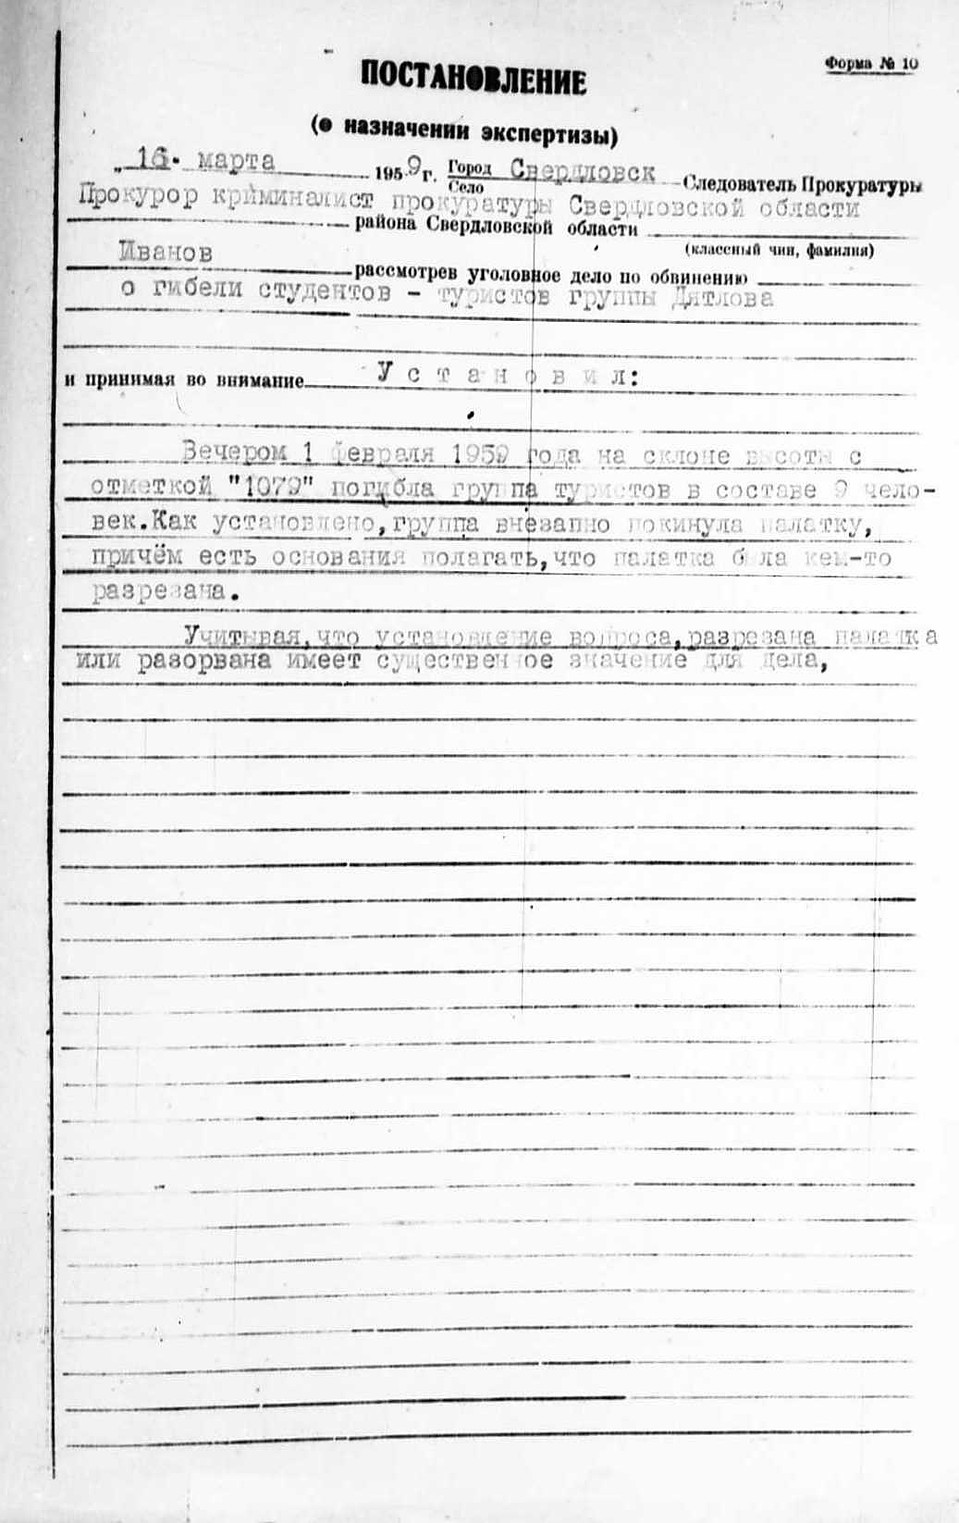 Форма № 10
ПОСТАНОВЛЕНИЕ
(о назначении экспертизы)
„16. марта 1959г. Город Село Свердловск Следователь Прокуратуры
Прокурор криминалист прокуратуры Свердловской области
района Свердловской области
(классный чин, фамилия)
Иванов
рассмотрев уголовное дело по обвинению
о гибели студентов - туристов группы Дятлова
и принимая во внимание У с т а н о в и л:
Вечером 1 февраля 1959 года на склоне высоты с
отметкой "1079" погибла группа туристов в составе 9 чело-
век.Как установлено,группа внезапно покинула палатку,
причём есть основания полагать,что палатка была кем-то
разрезана.
Учитывая,что установление вопроса,разрезана палатка
или разорвана имеет существенное значение для дела,